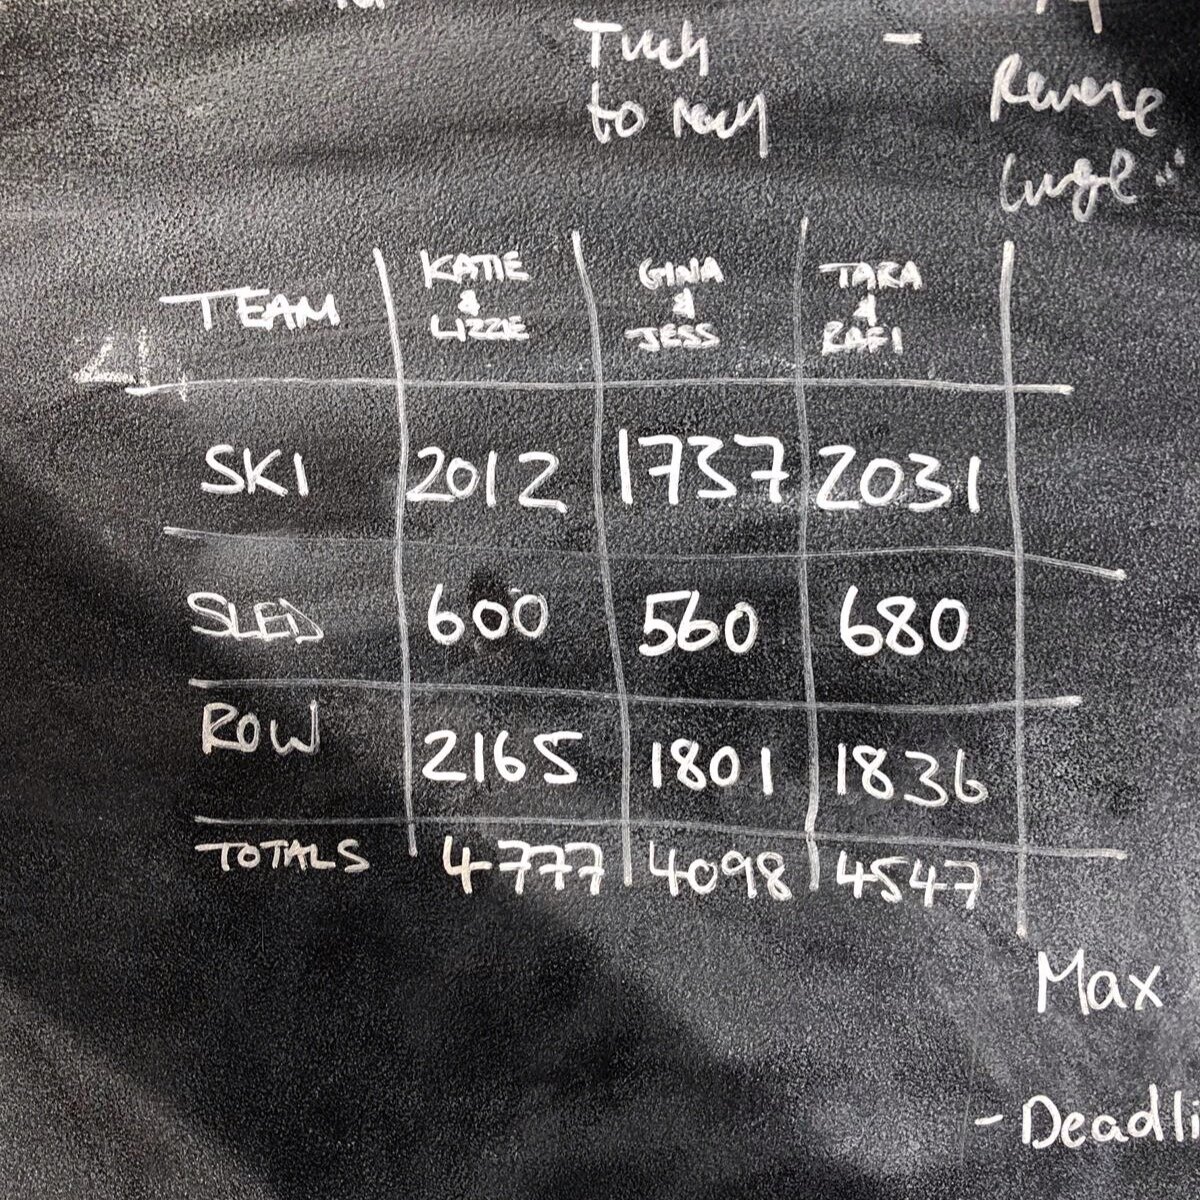 Touch
to reach
-
Reverse
lunge
TEAM KATIE & LIZZIE GINA & JESS TARA & RAFI
SKI 2012 1737 2031
SLED 600 560 680
ROW 2165 1801 1836
TOTALS 4777 4098 4547
Max
- Deadli